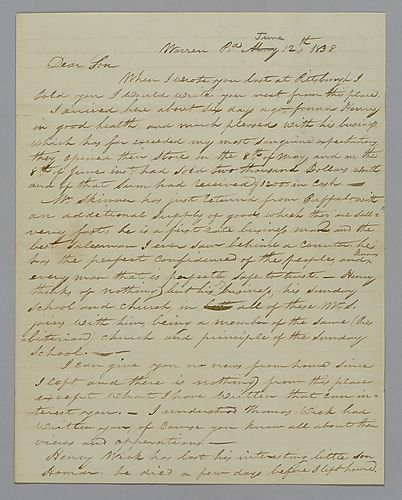 Warren Pa June 12th, 1838
Dear Son
When I wrote you last at Pittsburgh I
told you I would write you next from this place.
I arrived here about six days ago found Henry
in good health, and much pleased with his business
which has far exceeded my most sanguine expectations
they opened their Store on the 8th of May and on the
8th of June inst had sold two thousand Dollars worth
and of that Sum had received, 1200 in cash. —
Mr Skinner has just returned from Buffalo with
an additional supply of goods which they are selling
very fast, he is a first rate business man and the
best salesman I ever saw behind a counter he
has the perfect confidence of the people and
every man that is perfectly safe to trust. — Henry
thinks of nothing but his business, his sunday
School and church, in all of these Mr S.
joins with him being a member of the same Pres
biterian church and principle of the sunday
School. —
I can give you no news from home since
I left and there is nothing from this place
except what I have written that can in-
terest you. — I understood Thomas Wick had
written you, of course you know all about their
views and opperations —
Henry Wick has lost his interesting little son
Homer he died a few days before I left home